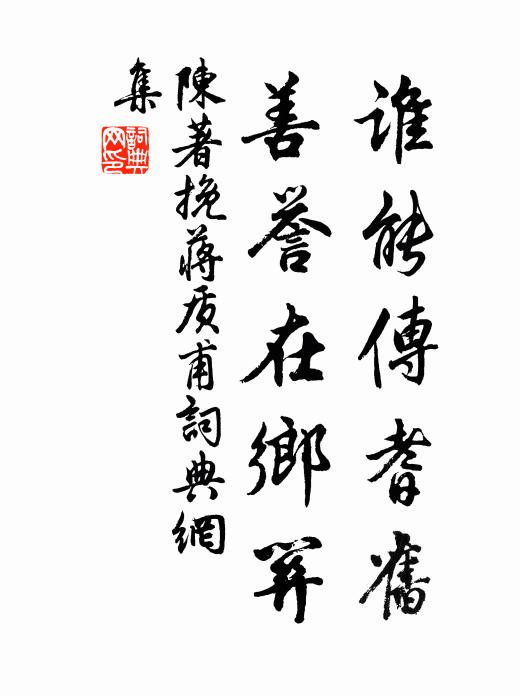 誰能傳耆舊
善譽在鄉羿
陳著挽蔣质甫詞典網
集
詞典網印